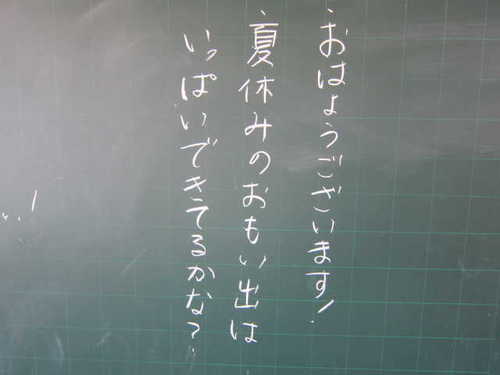 おはようございます!
夏休みのおもい出は
いっぱいできてるかな?